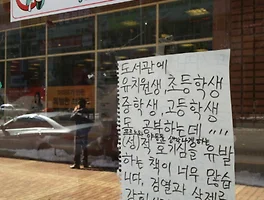 도서관에
유치원생, 초등학생
중학생, 고등학생
도 공부하는데 ,,,,
(성)적 호기심을 유발
하는 책이 너무 많습
니다. 검열과 삭제를